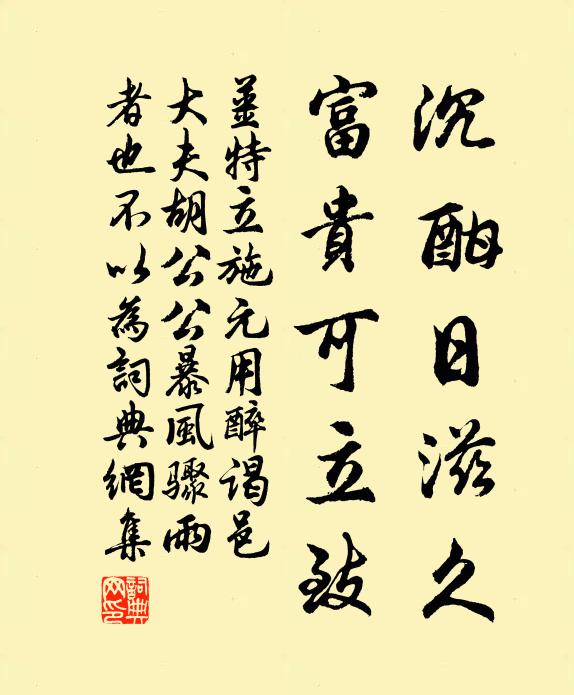 沉酣日滋久
富貴可立致
薑特立施元用醉谒邑
大夫胡公公暴風驟雨
者也不以為詞典網集
詞典網印